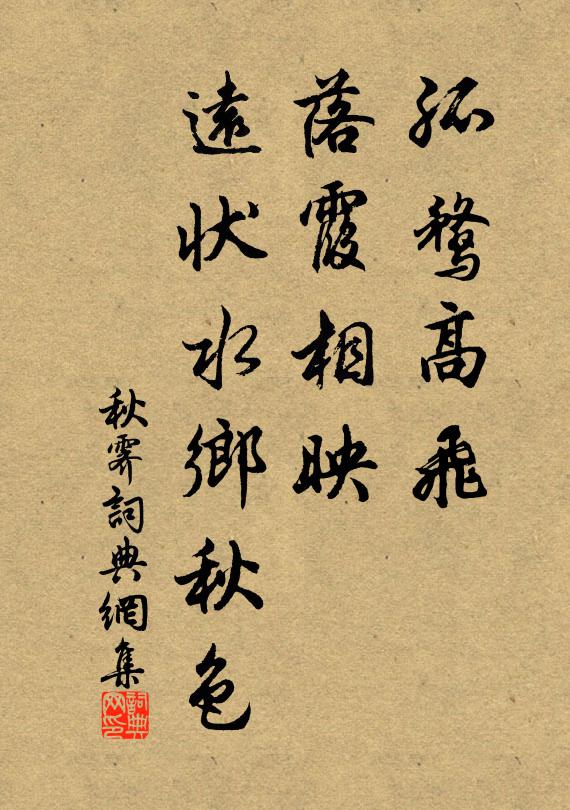 孤鶩高飛
落霞相映
遠狀水鄉秋色
秋霽詞典網集
詞典网印